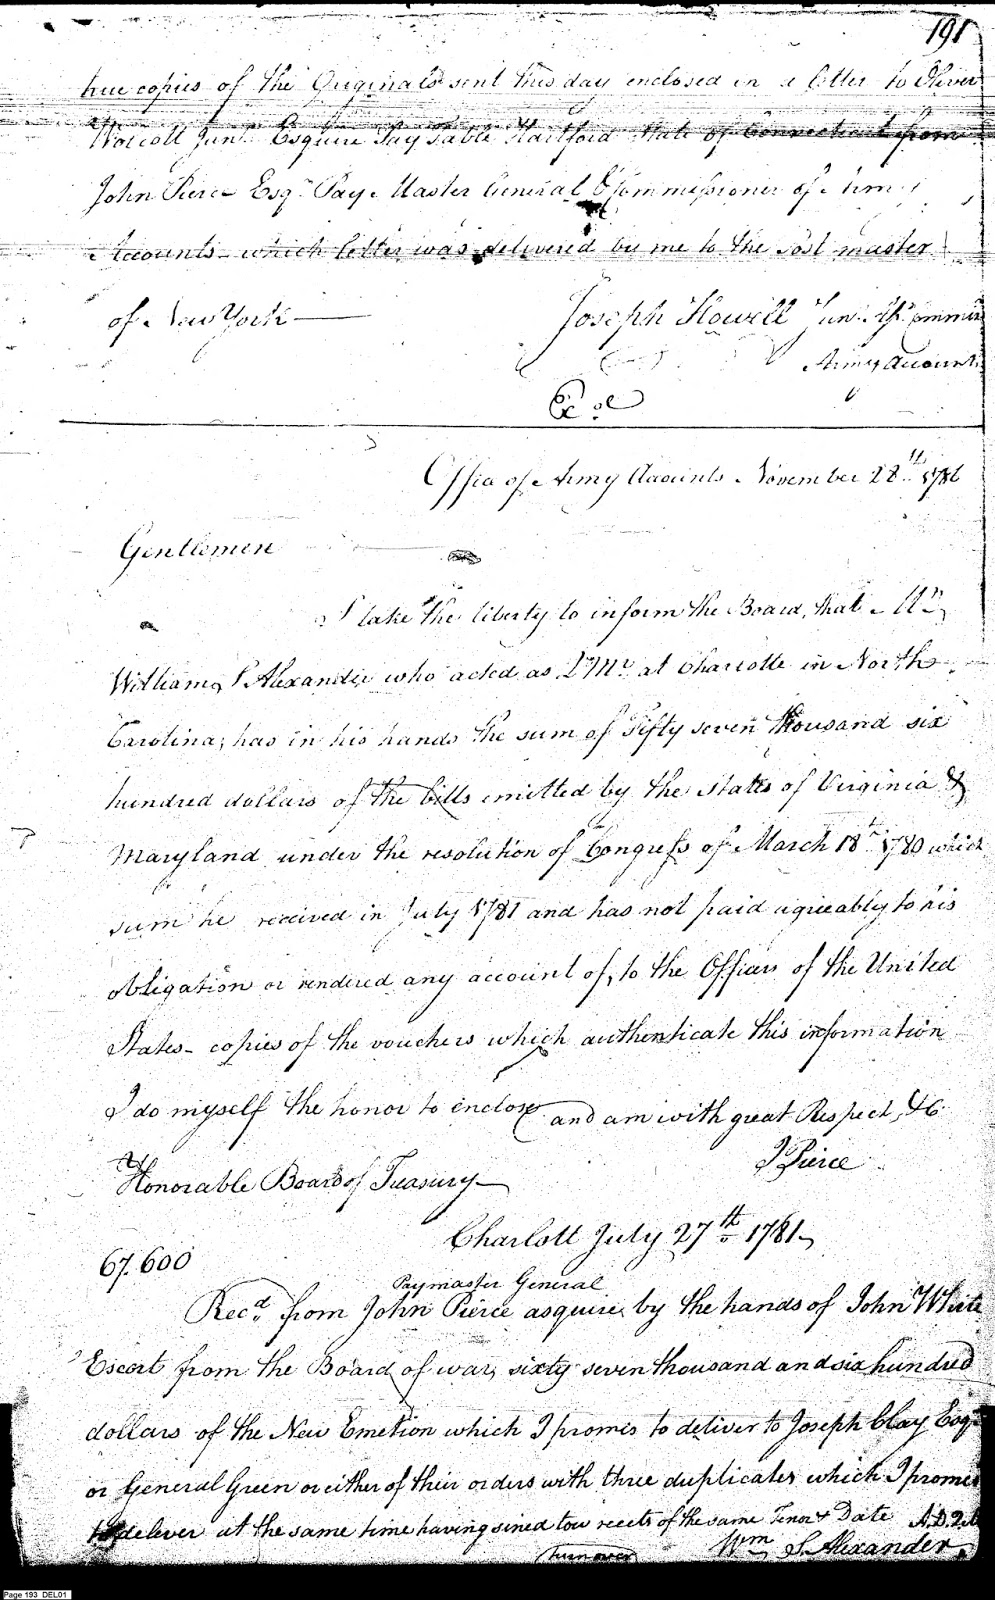 191
true copies of the Originals sent this day enclosed in a letter to Oliver
Wolcott Junr. Esquire Pay Table Hartford State of Connecticut from
John Pierce Esqr. Pay Master General & Commissioner of Army
Accounts which letter was delivered by me to the Post master
of New York
Joseph Howell Junr.
Army Accounts
Office of Army Accounts November 28th 1786
Gentlemen
I take the liberty to inform the Board, that Mr.
William S Alexander who acted as QMr at Charlotte in North
Carolina, has in his hands the sum of Fifty seven thousand six
hundred dollars of the bills emitted by the States of Virginia &
Maryland under the resolution of Congress of March 18th 1780 which
sum he received in July 1781 and has not paid agreeably to his
obligation or rendered any account of, to the Officers of the United
States - copies of the vouchers which authenticate this information
I do myself the honor to enclose and am with great Respect, &c
J Pierce
Honorable Board of Treasury
Charlott July 27th 1781
67.600
Paymaster General
Recd. from John Pierce asquire by the hands of John White
Escort from the Board of war, sixty seven thousand and six hundred
dollars of the New Emetion which I promis to deliver to Joseph Clay Esqr
or General Green or either of their orders with three duplicates which I promis
to deliver at the same time having sined tow recets of the same Tenor & Date
Wm S. Alexander
turn over
Page 193 DEL01